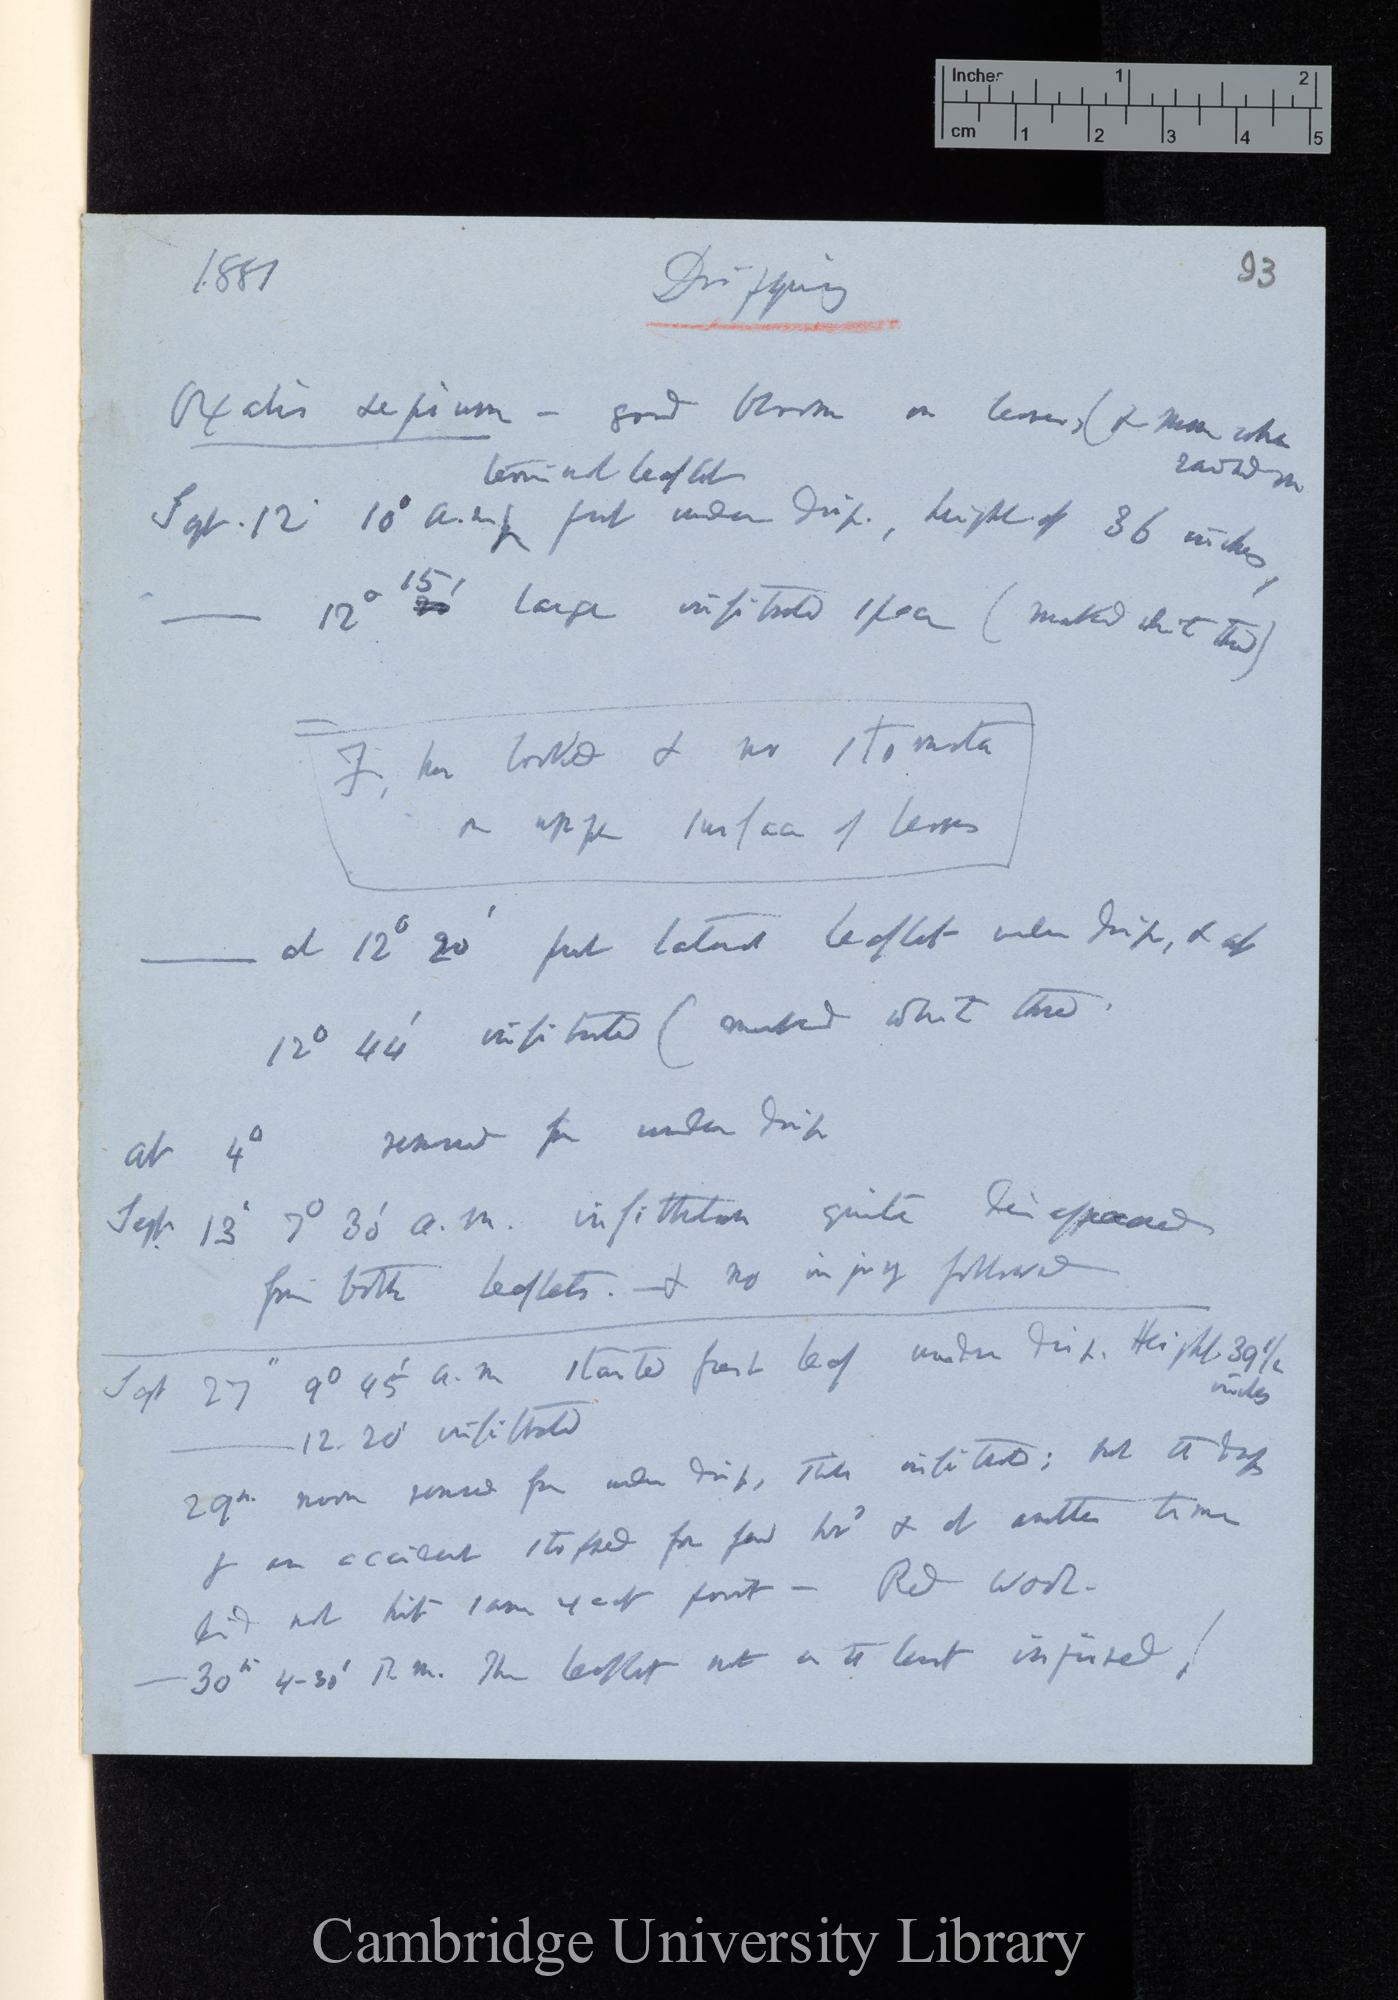 Inches 1 2
cm 1 2 3 4 5
1881 Dripping 93
Oxalis sepium — good bloom on leaves, (& some when
terminal leaflet
Sept. 12 10° a.m. put under drip., height of 36 inches,
—— 12° 15' large infiltrated space (marked white thread)
F. has looked & no stomata
on upper surface of leaves
—— at 12° 20' put lateral leaflet under drip, & at
12° 44' infiltrated (marked white thread.
at 4° removed from under drip
Sept. 13' 7° 30' a.m. infiltration quite disappeared
from both leaflets. — & no injury followed
Sept 27" 9° 45' a.m started fresh leaf under drip. Height 39 1/2
inches
—— 12. 20' infiltrated
29th. noon removed from under drip, then infiltrated; but the drops
by an accident stopped for few hrs & at another time
did not hit same exact point — Red wool.
— 30th 4-30' P.m. The leaflet not in the least injured!
Cambridge University Library